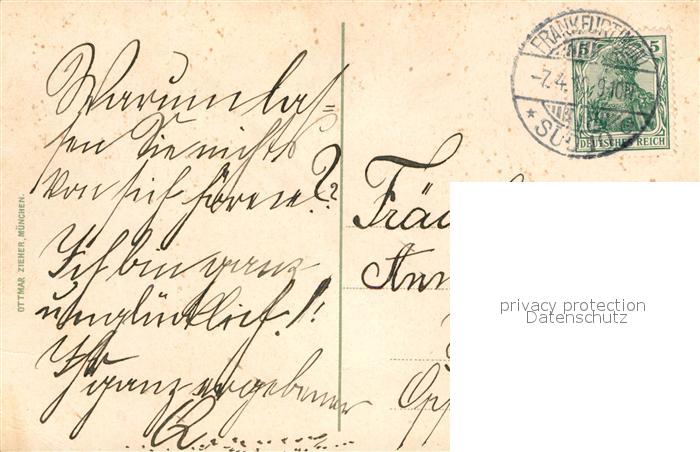 Warum las=
sen Sie nichts
von sich hören??
Ich bin ganz
unglücklich!!
Ihr
ganz ergebener
OTTMAR ZIEHER, MÜNCHEN.
FRANKFURT
-7.4.
9-10
* SÜD 10
5
DEUTSCHES REICH
Fräu
Ann
privacy protection
Datenschutz